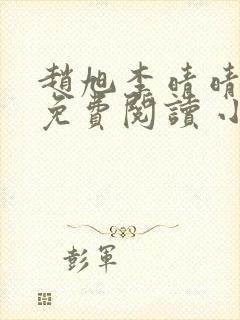 趙旭李晴晴
免費閱讀小
彭軍